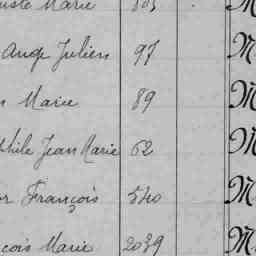 Marie 803 M
Ange Julien 97 M
Marie 89 M
phile Jean Marie 62 M
François 540 M
çois Marie 2039 M